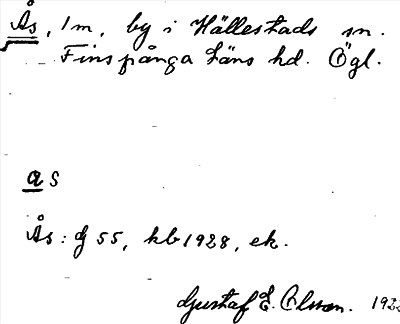 Ås, 1m, by i Hällestads sn.
Finspånga Läns hd. Ögl.
a s
Ås: J 55, kb 1928, ek.
Gustaf E. Olsson.